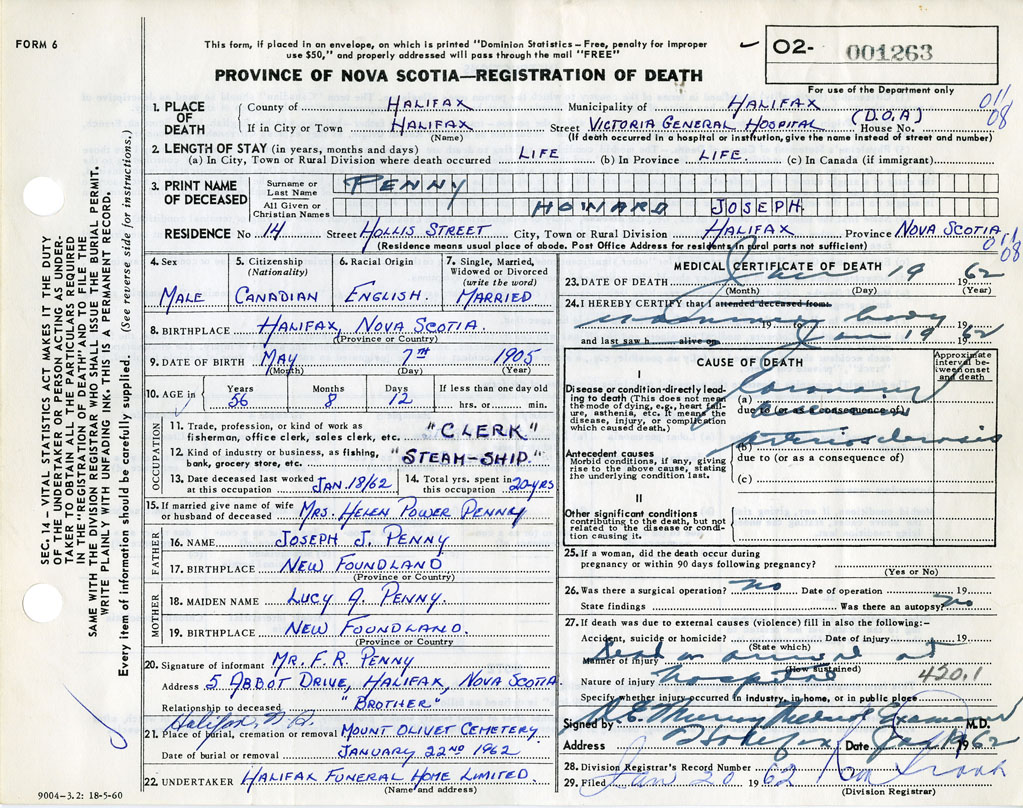 FORM 6
This form, if placed in an envelope, on which is printed "Dominion Statistics – Free, penalty for improper
use $50," and properly addressed will pass through the mail "FREE"
PROVINCE OF NOVA SCOTIA—REGISTRATION OF DEATH
02- 001263
For use of the Department only
011/08
1. PLACE OF DEATH
County of HALIFAX Municipality of HALIFAX
If in City or Town HALIFAX Street VICTORIA GENERAL HOSPITAL (D.O.A) House No.
(Name) (If death occurred in a hospital or institution, give the name instead of street and number)
2. LENGTH OF STAY (in years, months and days)
(a) In City, Town or Rural Division where death occurred LIFE (b) In Province LIFE. (c) In Canada (if immigrant)
3. PRINT NAME OF DECEASED
Surname or Last Name PENNY
All Given or Christian Names HOWARD JOSEPH.
RESIDENCE No. 14 Street HOLLIS STREET City, Town or Rural Division HALIFAX Province NOVA SCOTIA
(Residence means usual place of abode. Post Office Address for residents in rural parts not sufficient)
011/08
4. Sex MALE
5. Citizenship (Nationality) CANADIAN
6. Racial Origin ENGLISH.
7. Single, Married, Widowed or Divorced (write the word) MARRIED
8. BIRTHPLACE HALIFAX, NOVA SCOTIA.
(Province or Country)
9. DATE OF BIRTH MAY 7TH 1905
(Month) (Day) (Year)
10. AGE in Years 56 Months 8 Days 12 If less than one day old hrs. or min.
OCCUPATION
11. Trade, profession, or kind of work as
fisherman, office clerk, sales clerk, etc. "CLERK"
12. Kind of industry or business, as fishing,
bank, grocery store, etc. "STEAM-SHIP."
13. Date deceased last worked at this occupation JAN. 18/62
14. Total yrs. spent in this occupation 20-YRS
15. If married give name of wife or husband of deceased MRS. HELEN POWER PENNY
FATHER
16. NAME JOSEPH J. PENNY
17. BIRTHPLACE NEW FOUNDLAND
(Province or Country)
MOTHER
18. MAIDEN NAME LUCY A. PENNY.
19. BIRTHPLACE NEW FOUNDLAND.
(Province or Country
20. Signature of informant MR. F. R. PENNY
Address 5 ABBOT DRIVE, HALIFAX, NOVA SCOTIA.
Relationship to deceased "BROTHER"
Halifax, N.S.
21. Place of burial, cremation or removal MOUNT OLIVET CEMETERY.
Date of burial or removal JANUARY 22ND 1962
22. UNDERTAKER HALIFAX FUNERAL HOME LIMITED.
(Name and address)
9004-3.2: 18-5-60
MEDICAL CERTIFICATE OF DEATH
23. DATE OF DEATH Jan 19 62
(Month) (Day) (Year)
24. I HEREBY CERTIFY that I attended deceased from:
19 to body
and last saw h alive on Jan 19 1962
CAUSE OF DEATH
Approximate interval between onset and death
I
Disease or condition directly leading to death (This does not mean the mode of dying, e.g., heart failure, asthenia, etc. It means the disease, injury, or complication which caused death.)
(a) Coronary
due to (or as a consequence of)
(b) arteriosclerosis
Antecedent causes
Morbid conditions, if any, giving rise to the above cause, stating the underlying condition last.
due to (or as a consequence of)
(c)
II
Other significant conditions
contributing to the death, but not related to the disease or condition causing it.
25. If a woman, did the death occur during
pregnancy or within 90 days following pregnancy?
(Yes or No)
26. Was there a surgical operation? no Date of operation 19
State findings Was there an autopsy? no
27. If death was due to external causes (violence) fill in also the following:–
Accident, suicide or homicide? Date of injury 19
(State which)
Manner of injury Dead on arrival at
(How sustained)
Nature of injury hospital 420.1
Specify whether injury occurred in industry, in home, or in public place
Signed by R. E. Murray Medical Examiner M.D.
Address Halifax Date Jan 19 1962
28. Division Registrar's Record Number
29. Filed Jan 20 1962
(Division Registrar)
SEC. 14 – VITAL STATISTICS ACT MAKES IT THE DUTY
OF THE UNDERTAKER OR PERSON ACTING AS UNDER-
TAKER TO OBTAIN ALL THE PARTICULARS REQUIRED
IN THE "REGISTRATION OF DEATH" AND TO FILE THE
SAME WITH THE DIVISION REGISTRAR WHO SHALL ISSUE THE BURIAL PERMIT.
WRITE PLAINLY WITH UNFADING INK. THIS IS A PERMANENT RECORD.
Every item of information should be carefully supplied. (See reverse side for instructions.)